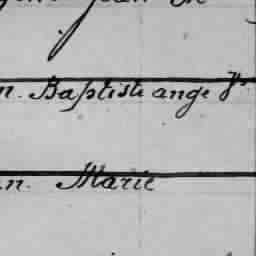 Jean
n. Baptiste ange
n. Marie